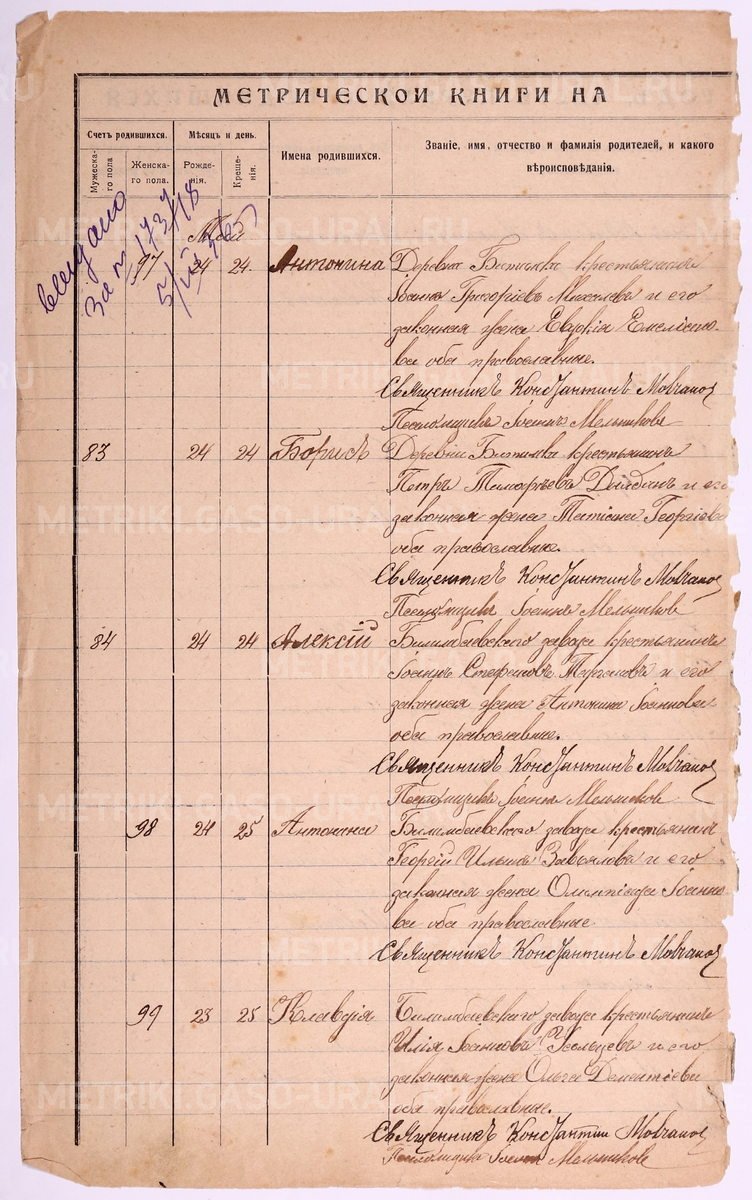 МЕТРИЧЕСКОЙ КНИГИ НА
Счетъ родившихся.
Мужеска-го пола
Женска-го пола.
Мѣсяцъ и день.
Рожде-нія.
Креще-нія.
Имена родившихся.
Званіе, имя, отчество и фамилія родителей, и какого
вѣроисповѣданія.
За № 1737/18
Май
97 24 24. Антонина Деревни Битимки крестьянинъ
Іоаннъ Григоріевъ Михалевъ и его
законная жена Евдокія Емеліано-
ва оба православные.
Священникъ Константинъ Молчанов
Псаломщикъ Іоаннъ Мельниковъ
83 24 24 Борисъ Деревни Битимки крестьянинъ
Петръ и его
законная жена Татіана Георгіева
оба православные.
Священникъ Константинъ Молчанов
Псаломщикъ Іоаннъ Мельниковъ
84 24 24 Алексій Билимбаевскаго завода крестьянинъ
Іоаннъ Стефановъ и его
законная жена Антонина Іоаннова
оба православные.
Священникъ Константинъ Молчанов
Псаломщикъ Іоаннъ Мельниковъ
98 24 25 Антонина Билимбаевскаго завода крестьянинъ
Георгій Ильинъ Завьяловъ и его
законная жена Олимпіада Іоанно-
ва оба православные
Священникъ Константинъ Молчанов
99 23 25 Клавдія Билимбаевскаго завода крестьянинъ
Илія Іоанновъ и его
законная жена Ольга Дементіева
оба православные.
Священникъ Константинъ Молчанов
Псаломщикъ Іоаннъ Мельниковъ
METRIKI.GASO-URAL.RU